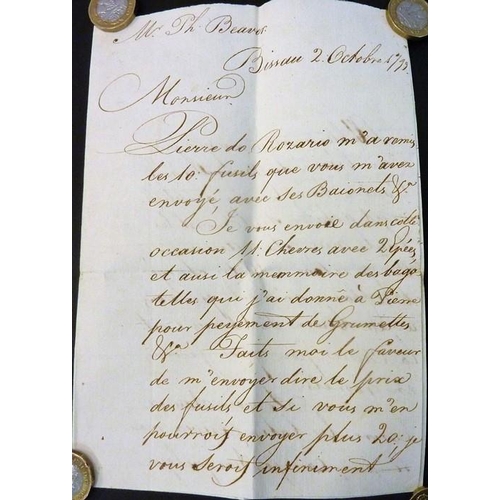 Mr. Ph. Beaver
Bissau 2 Octobre 1793
Monsieur
Pierre do Rozario m'a remis
les 10: fusils que vous m'avez
envoyé avec ses Baionets &a
Je vous envoie dans cette
occasion 11: Chevres avec 2 Epées
et ausi la memmoire des baga=
telles qui j'ai donné à Pierre
pour peyement de Grumettes
&a Faits moi le faveur
de m'envoyer dire le prix
des fusils et si vous m'en
pourroit envoyer plus 20: je
vous seroit infiniment